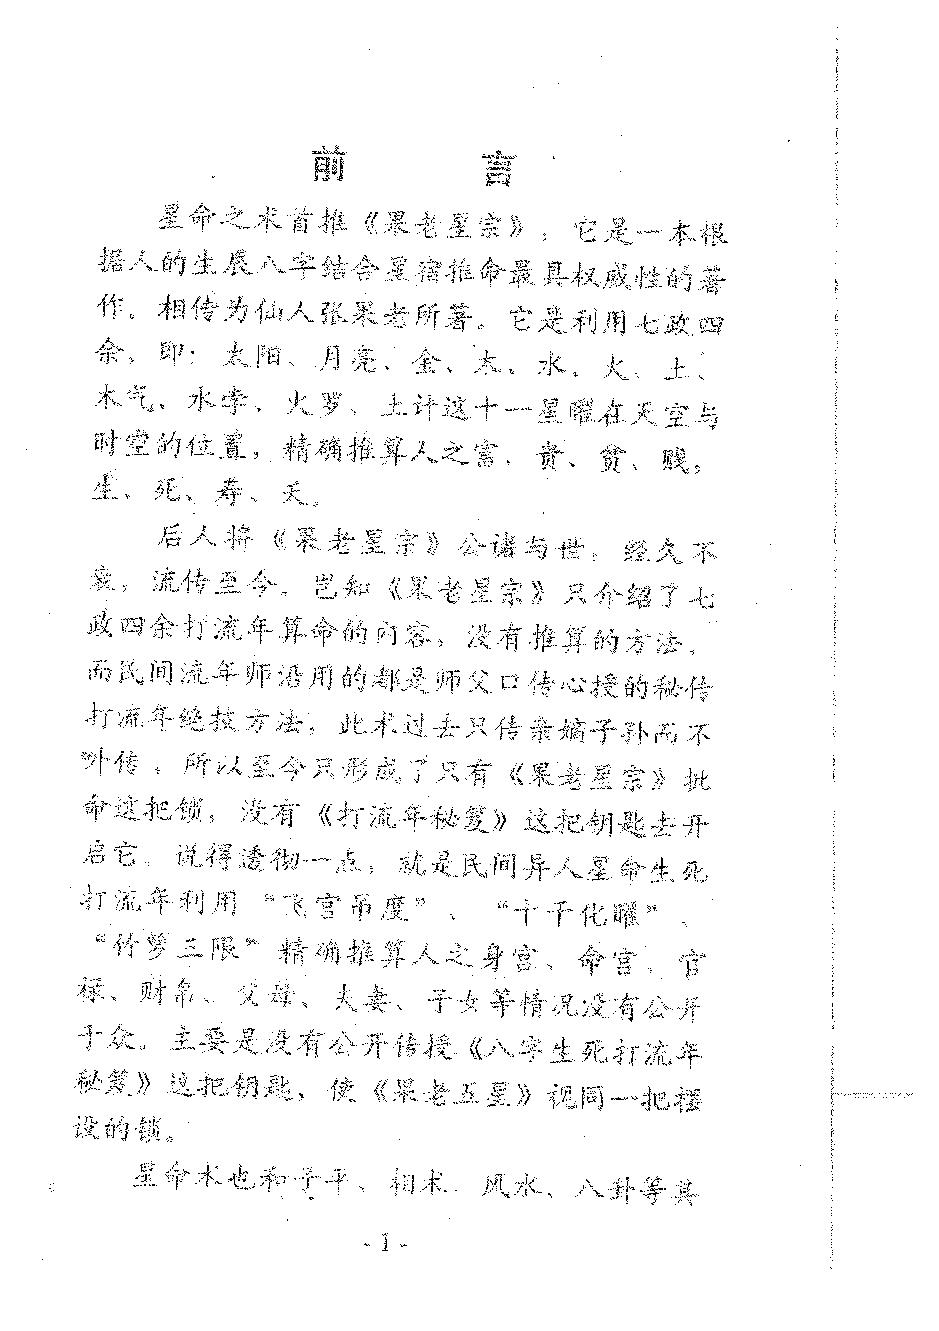 前 言
星命之术首推《果老星宗》，它是一本根
据人的生辰八字结合星宿推命最具权威性的著
作。相传为仙人张果老所著。它是利用七政四
余，即：太阳、月亮、金、木、水、火、土、
木气、水孛、火罗、土计这十一星曜在天空与
时堂的位置，精确推算人之富、贵、贫、贱，
生、死、寿、夭。
后人将《果老星宗》公诸与世，经久不
衰，流传至今。岂知《果老星宗》只介绍了七
政四余打流年算命的内容，没有推算的方法。
而民间流年师沿用的都是师父口传心授的秘传
打流年绝技方法，此术过去只传亲嫡子孙而不
外传，所以至今只形成了只有《果老星宗》批
命这把锁，没有《打流年秘笈》这把钥匙去开
启它。说得透彻一点，就是民间异人星命生死
打流年利用“飞宫吊度”、“十干化曜”、
“竹萝三限”精确推算人之身宫、命宫、官
禄、财帛、父母、夫妻、子女等情况没有公开
于众。主要是没有公开传授《八字生死打流年
秘笈》这把钥匙，使《果老五星》视同一把摆
设的锁。
星命术也和子平、相术、风水、八卦等其
- 1 -